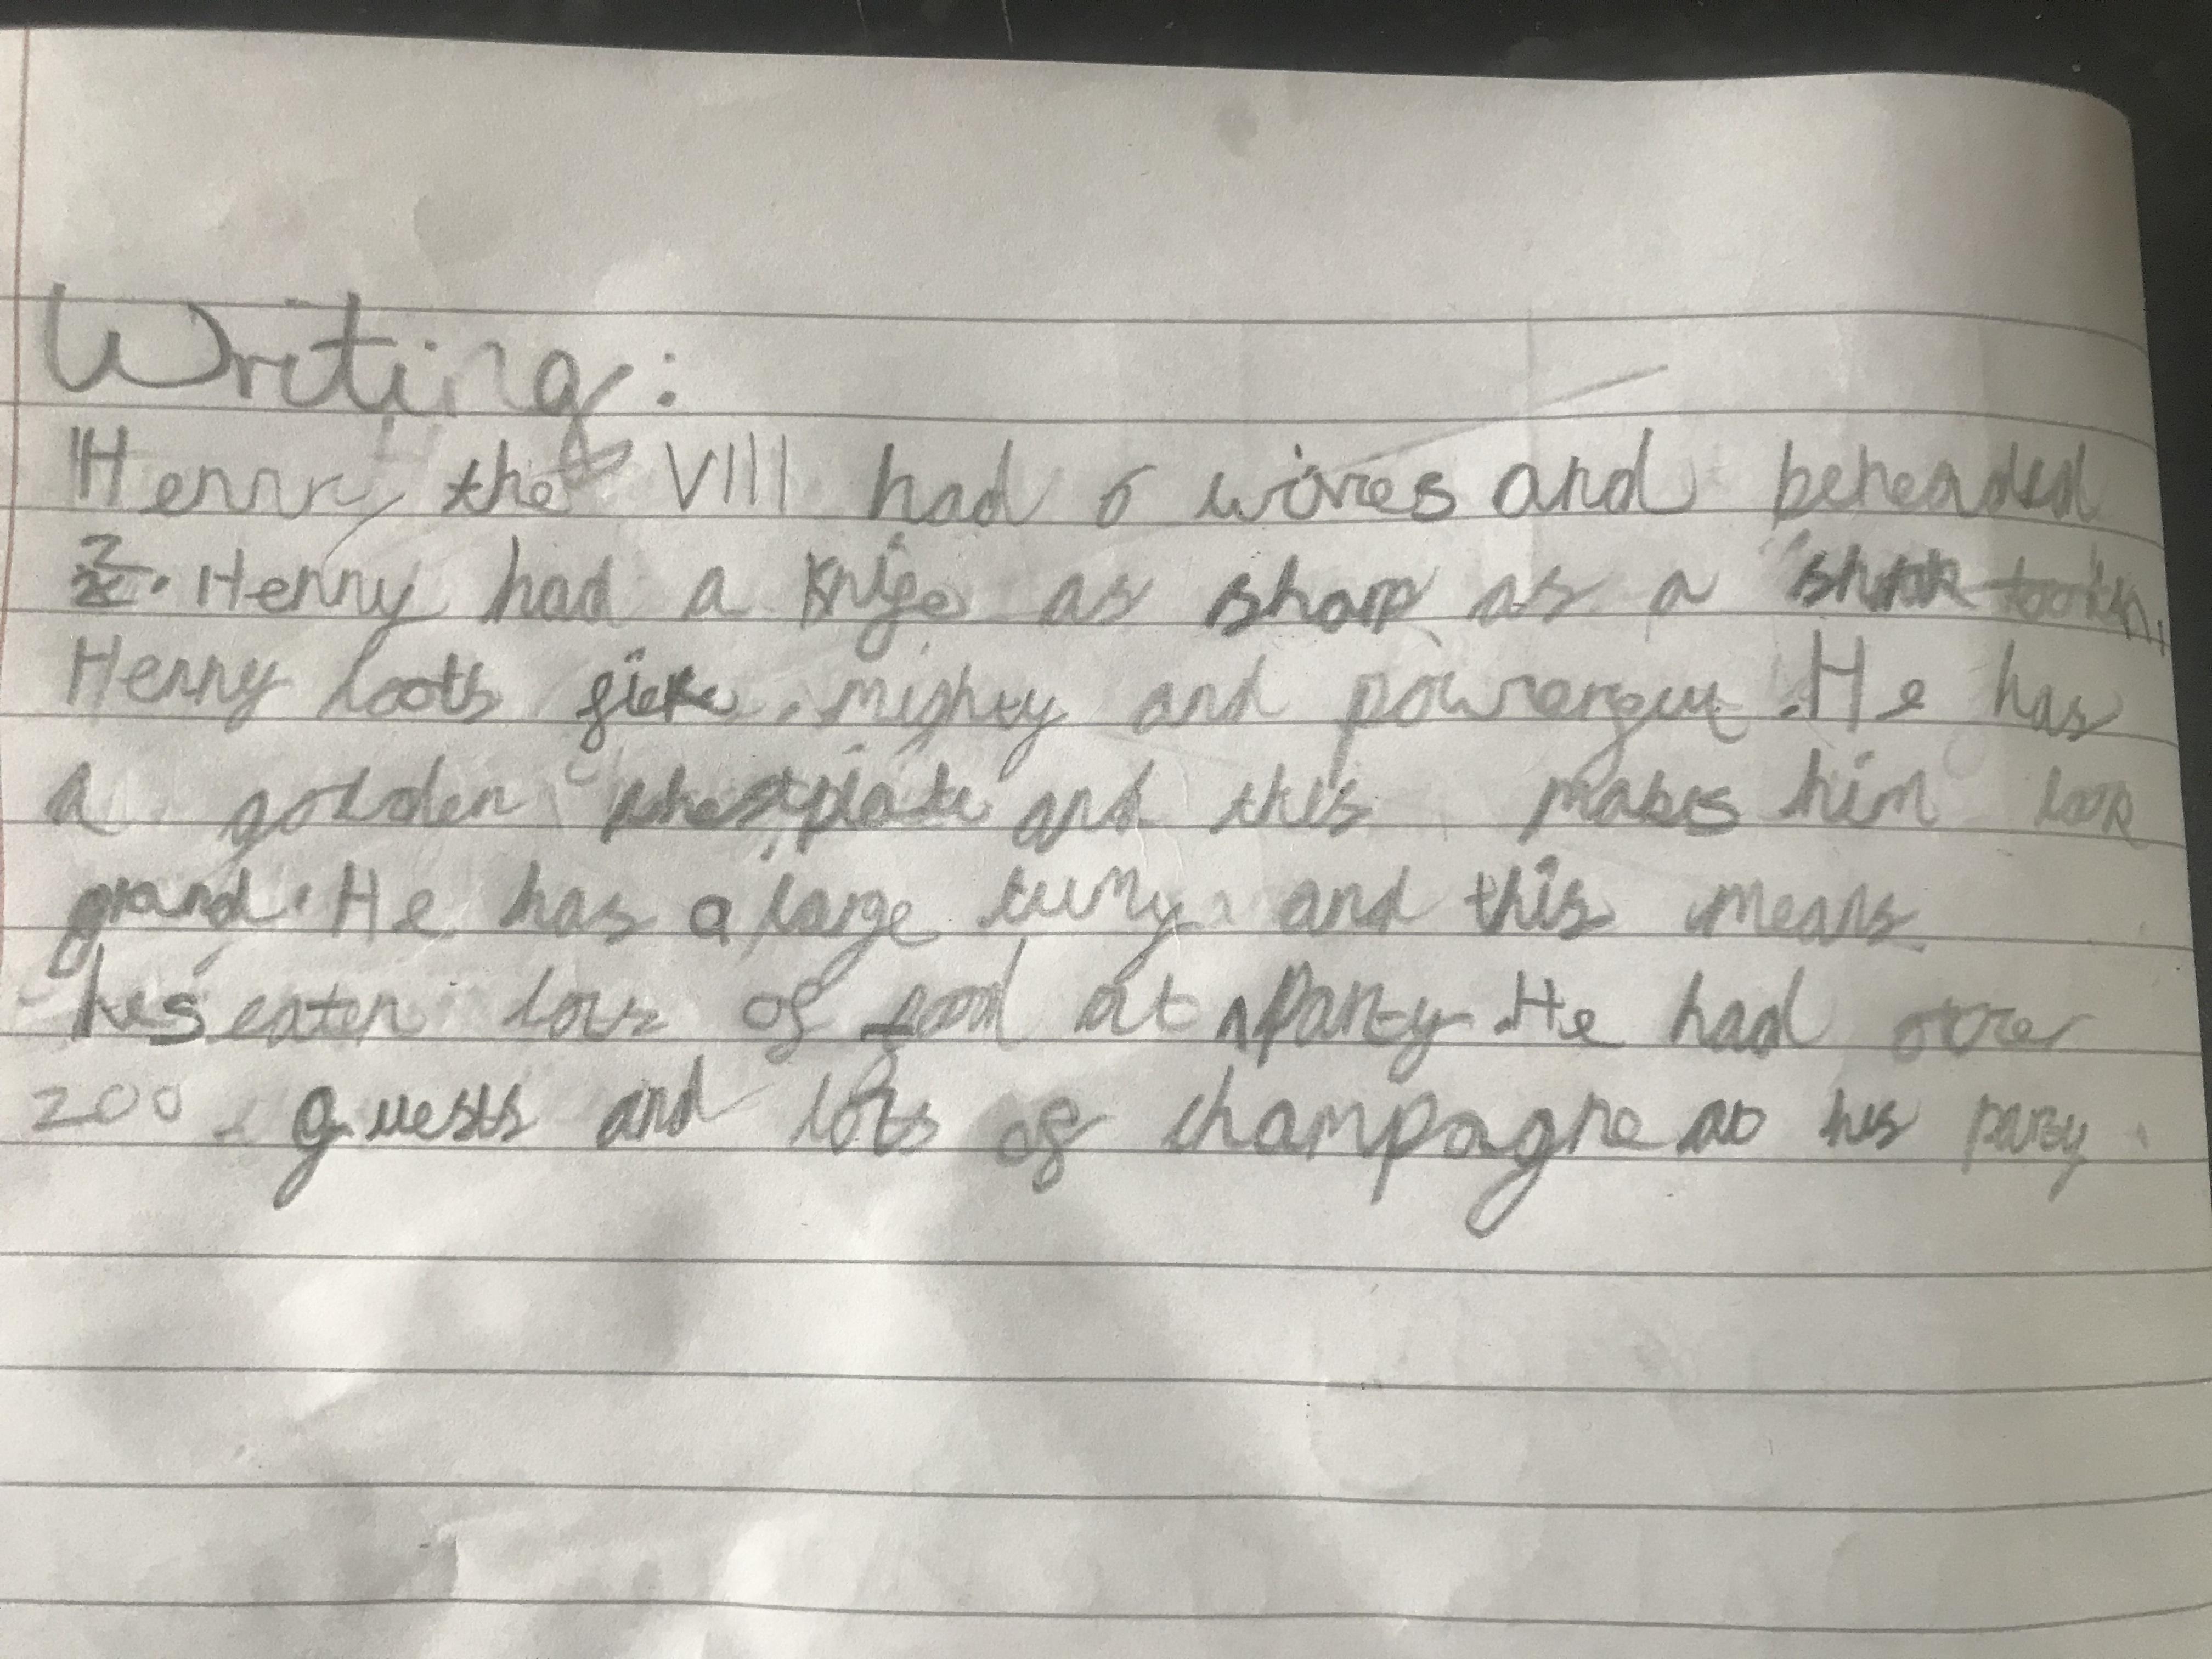 Writing:
Henry the VIII had 6 wives and beheaded
2. Henry had a knife as sharp as a shark tooth.
Henry looks mighty and powerful. He has
a golden chestplate and this makes him look
grand. He has a large tummy and this means
his eaten lots of food at party. He had over
200 guests and lots of champagne at his party